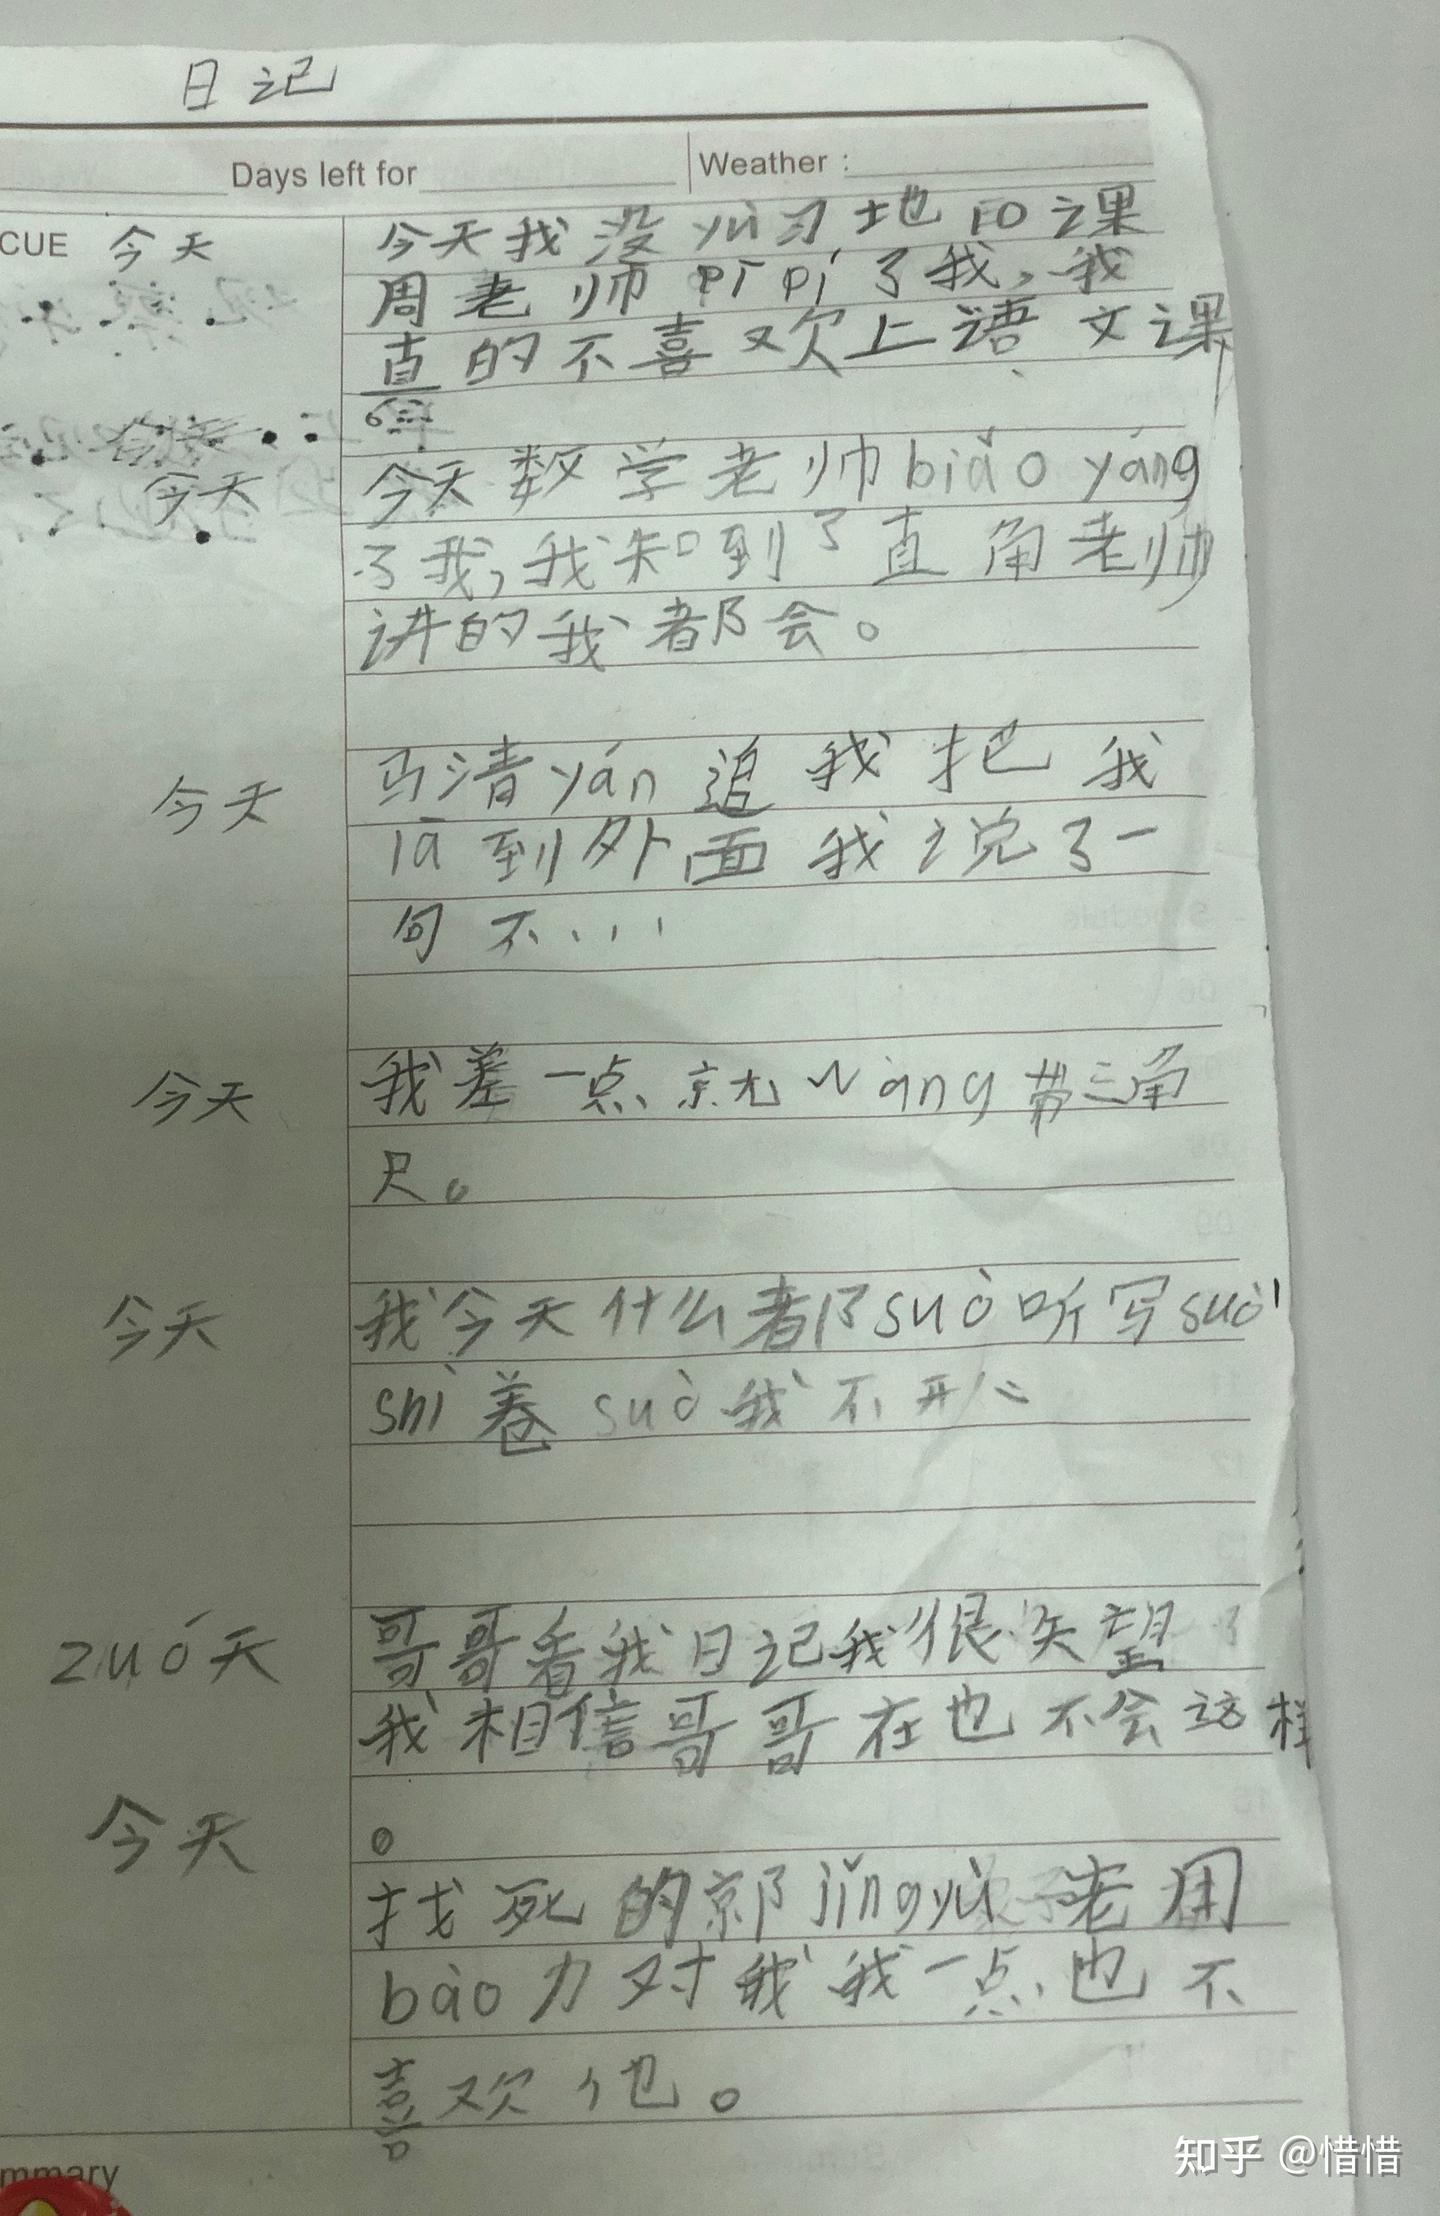 日记
Days left for
Weather :
CUE 今天
今天我没yù习地回课
周老师pī pí了我，我
真的不喜欢上语文课
今天
今天数学老师biǎo yáng
了我，我知到了直角老师
讲的我都会。
今天
马清yán追我把我
lā到外面我说了一
句不....
今天
我差一点就wàng带三角
尺。
今天
我今天什么都suò听写suò
shì卷suò我不开心
zuó天
哥哥看我日记我很失望了
我相信哥哥在也不会这样
。
今天
找死的郭jǐngyù老用
bào力对我我一点也不
喜欢他。
mmary
知乎 @惜惜